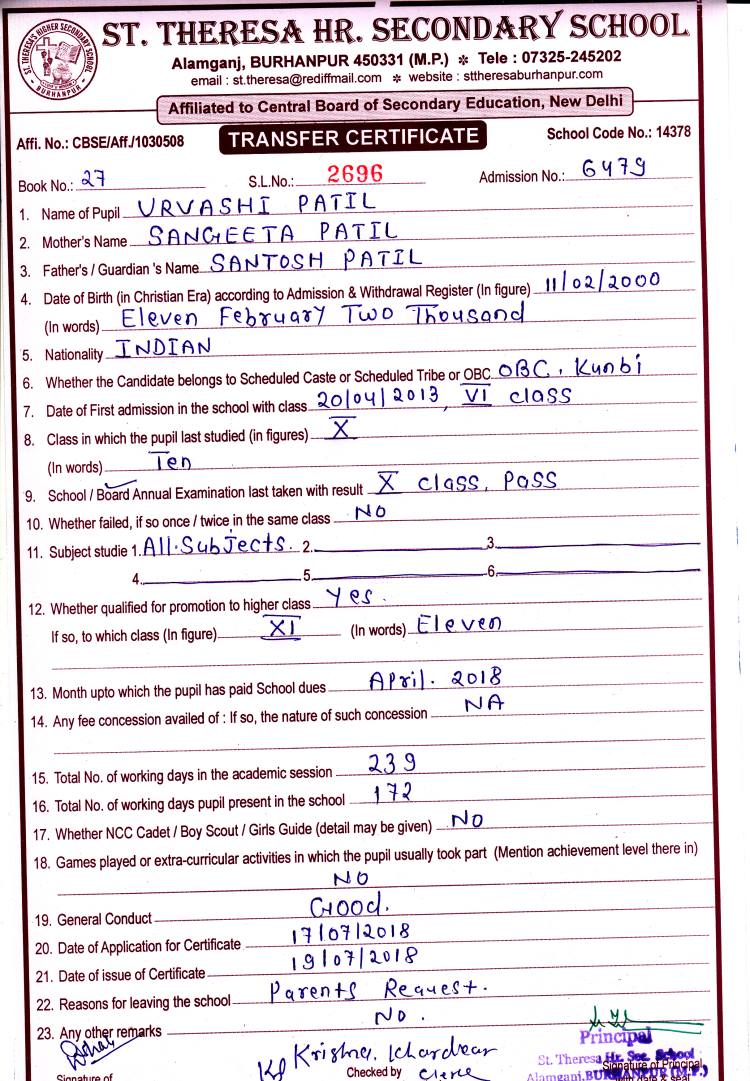 ST. THERESA'S HIGHER SECONDARY SCHOOL
BURHANPUR
ST. THERESA HR. SECONDARY SCHOOL
Alamganj, BURHANPUR 450331 (M.P.) * Tele : 07325-245202
email : st.theresa@rediffmail.com * website : sttheresaburhanpur.com
Affiliated to Central Board of Secondary Education, New Delhi
Affi. No.: CBSE/Aff./1030508 TRANSFER CERTIFICATE School Code No.: 14378
Book No.: 27 S.L.No.: 2696 Admission No.: 6479
1. Name of Pupil URVASHI PATIL
2. Mother's Name SANGEETA PATIL
3. Father's / Guardian 's Name SANTOSH PATIL
4. Date of Birth (in Christian Era) according to Admission & Withdrawal Register (In figure) 11/02/2000
(In words) Eleven February Two Thousand
5. Nationality INDIAN
6. Whether the Candidate belongs to Scheduled Caste or Scheduled Tribe or OBC OBC, Kunbi
7. Date of First admission in the school with class 20/04/2013, VI class
8. Class in which the pupil last studied (in figures) X
(In words) Ten
9. School / Board Annual Examination last taken with result X class, Pass
10. Whether failed, if so once / twice in the same class NO
11. Subject studie 1. All.Subjects. 2. 3.
4. 5. 6.
12. Whether qualified for promotion to higher class Yes.
If so, to which class (In figure) XI (In words) Eleven
13. Month upto which the pupil has paid School dues April. 2018
14. Any fee concession availed of : If so, the nature of such concession NA
15. Total No. of working days in the academic session 239
16. Total No. of working days pupil present in the school 172
17. Whether NCC Cadet / Boy Scout / Girls Guide (detail may be given) NO
18. Games played or extra-curricular activities in which the pupil usually took part (Mention achievement level there in)
NO
19. General Conduct Good.
20. Date of Application for Certificate 17/07/2018
21. Date of issue of Certificate 19/07/2018
22. Reasons for leaving the school Parents Request.
23. Any other remarks No.
Principal
Krishna. Khardear
St. Theresa Hr. Sec. School
Signature of Checked by Clerk Signature of Principal
Alamganj, BURHANPUR (M.P.)